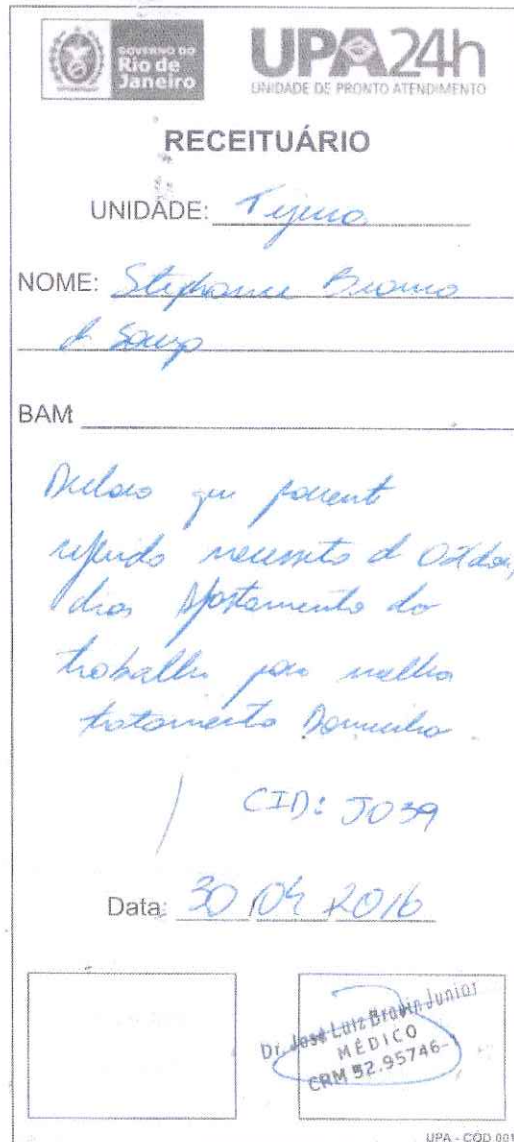 GOVERNO DO
Rio de
Janeiro
UPA24h
UNIDADE DE PRONTO ATENDIMENTO
RECEITUÁRIO
UNIDADE: Tijuca
NOME: Stephanie
de Souza
BAM
Declaro que paciente
referido necessita de
dias Afastamento do
trabalho para melhor
tratamento
CID: J039
Data: 30/04/2016
Dr. José Luiz Bravin Junior
MÉDICO
CRM 52.95746-
UPA - CÓD 001